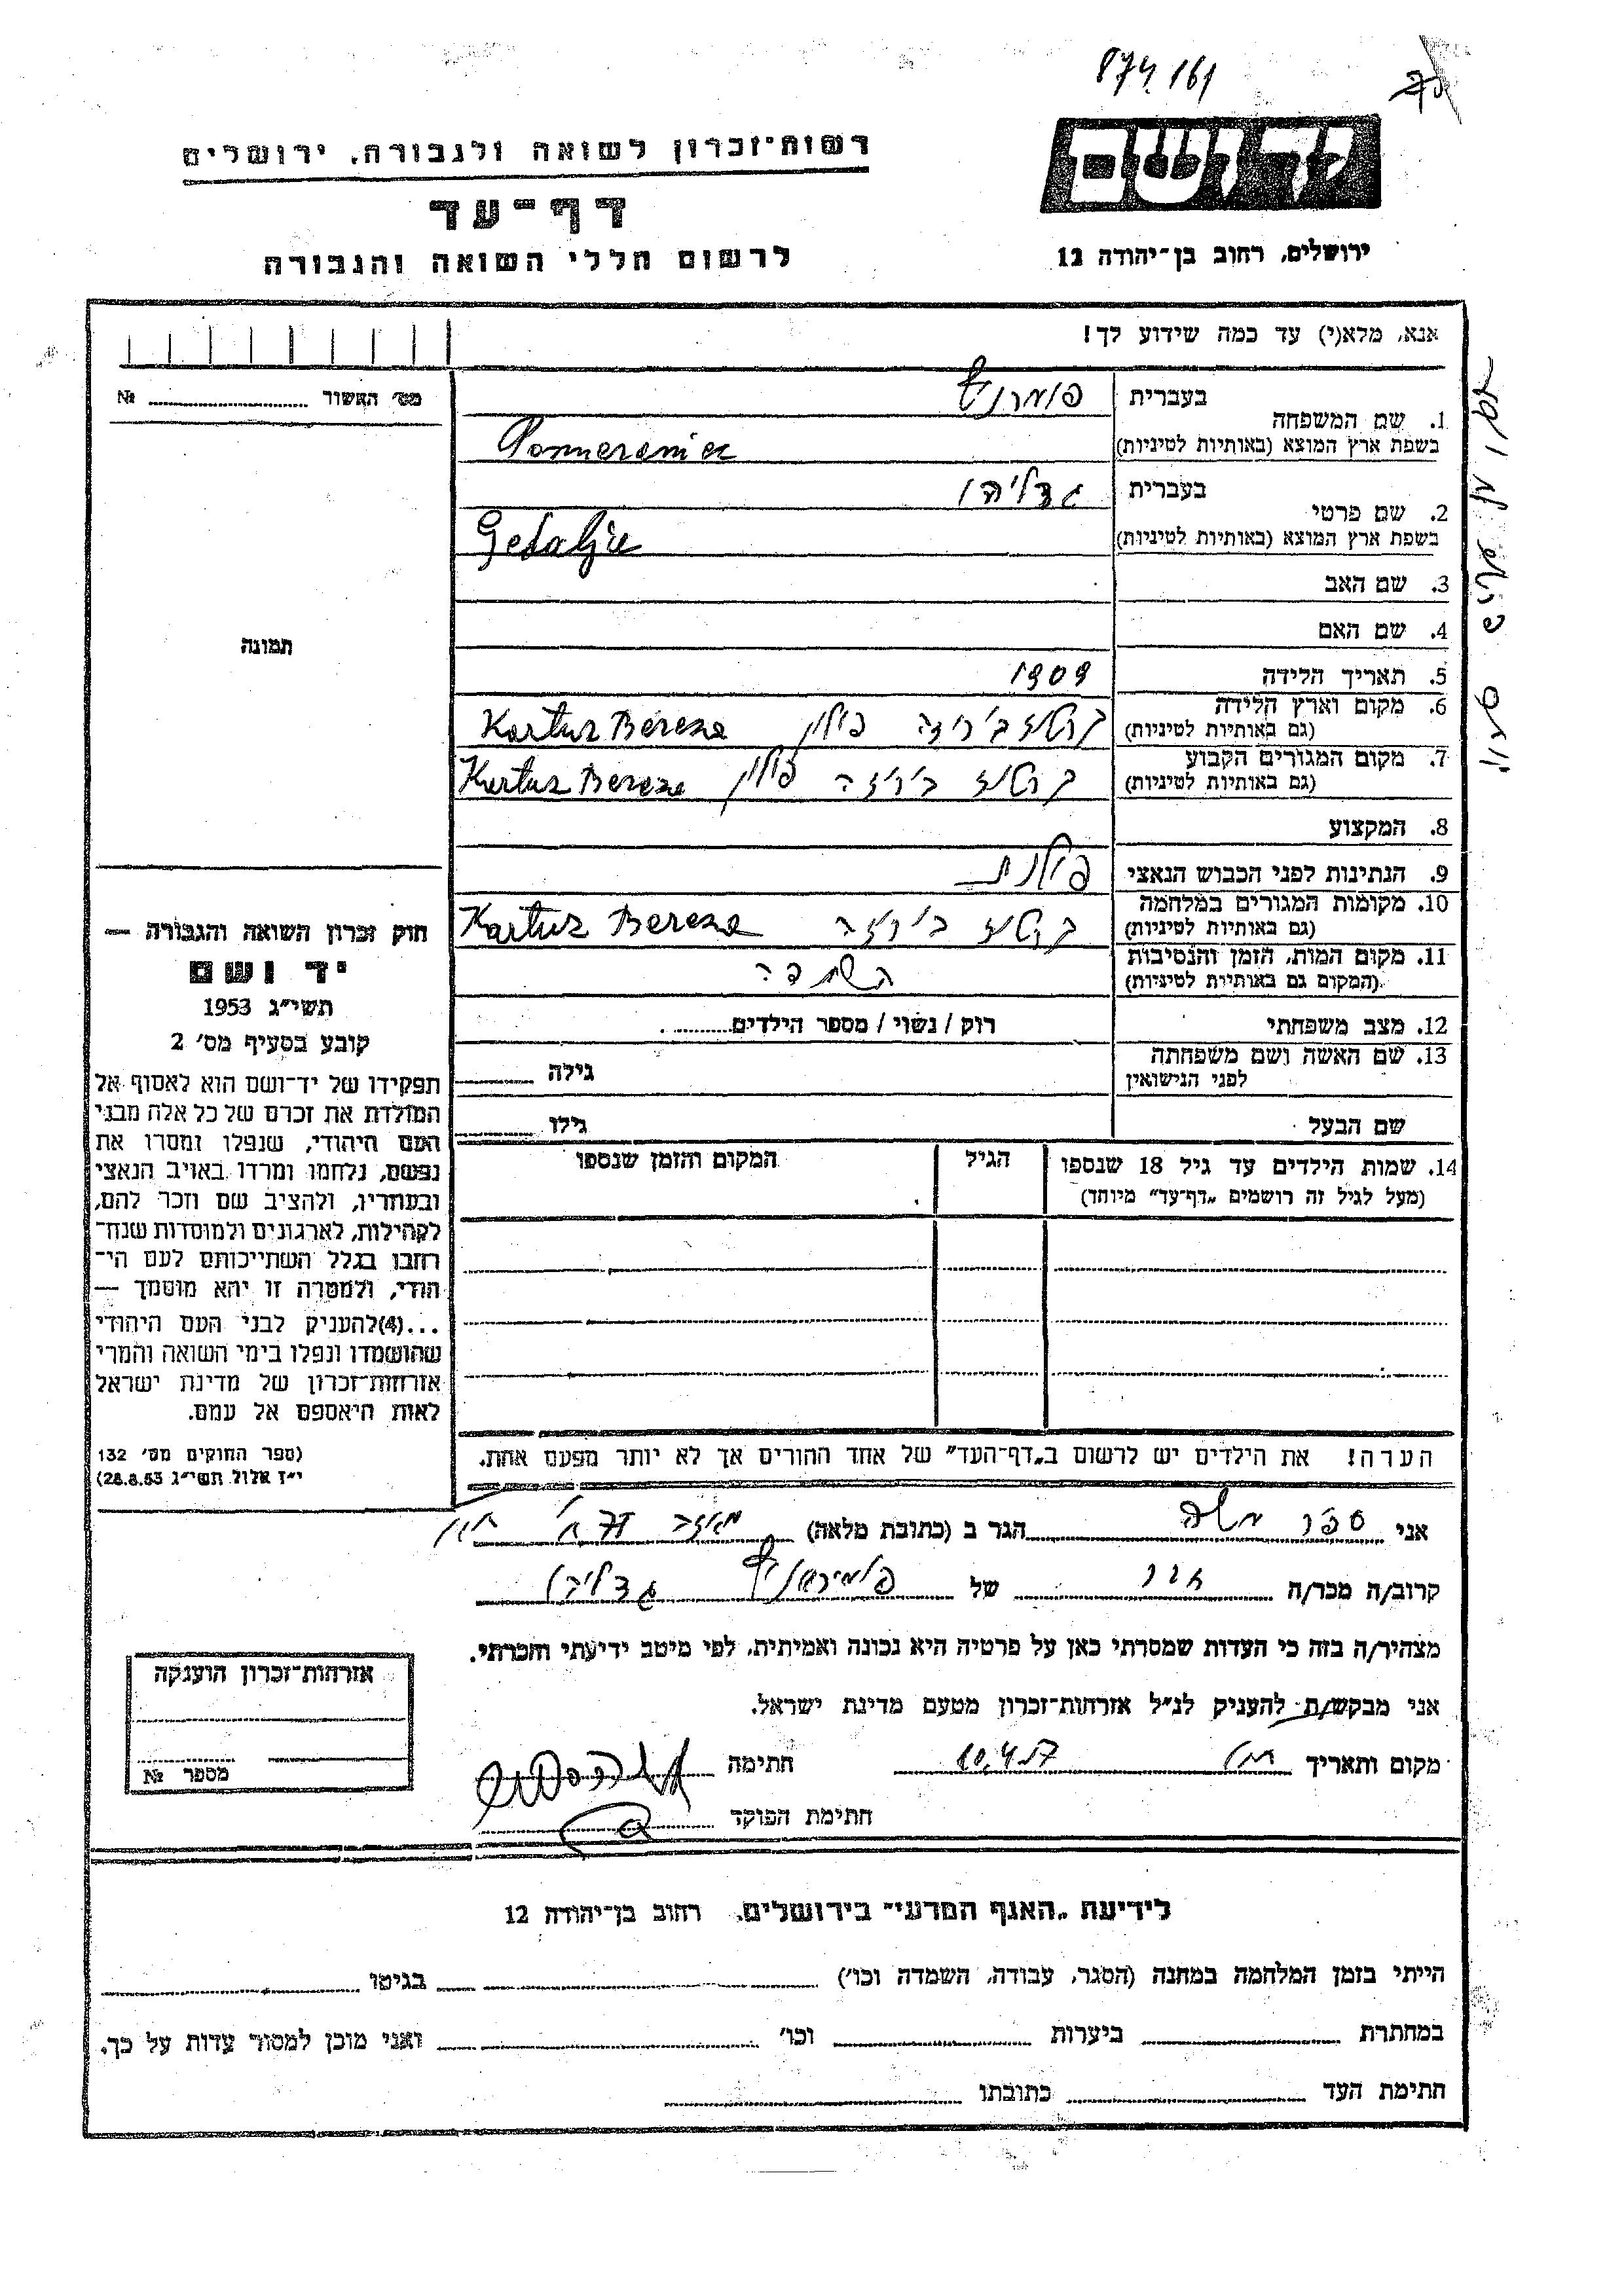 874.161
רשות־זכרון לשואה ולגבורה, ירושלים
יד ושם
דף־עד
לרשום חללי השואה והגבורה
ירושלים, רחוב בן־יהודה 12
אנא, מלא(י) עד כמה שידוע לך!
מס׳ האשור № ........
1. שם המשפחה
בעברית פומרניץ
בשפת ארץ המוצא (באותיות לטיניות) Pomeraniec
2. שם פרטי
בעברית גדליהו
בשפת ארץ המוצא (באותיות לטיניות) Gedalje
3. שם האב
4. שם האם
תמונה
5. תאריך הלידה 1909
6. מקום וארץ הלידה
(גם באותיות לטיניות) קרטוז ברזה פולין Kartuz Bereza
7. מקום המגורים הקבוע
(גם באותיות לטיניות) קרטוז ברזה פולין Kartuz Bereza
8. המקצוע
9. הנתינות לפני הכבוש הנאצי פולנית
10. מקומות המגורים במלחמה
(גם באותיות לטיניות) קרטוז ברזה Kartuz Bereza
11. מקום המות, הזמן והנסיבות
(המקום גם באותיות לטיניות) השמדה
12. מצב משפחתי רוק / נשוי / מספר הילדים........
13. שם האשה ושם משפחתה
לפני הנישואין גילה
שם הבעל גילו
14. שמות הילדים עד גיל 18 שנספו הגיל המקום והזמן שנספו
(מעל לגיל זה רושמים „דף־עד״ מיוחד)
חוק זכרון השואה והגבורה —
יד ושם
תשי״ג 1953
קובע בסעיף מס׳ 2
תפקידו של יד־ושם הוא לאסוף אל
המולדת את זכרם של כל אלה מבני
העם היהודי, שנפלו ומסרו את
נפשם, נלחמו ומרדו באויב הנאצי
ובעוזריו, ולהציב שם וזכר להם,
לקהילות, לארגונים ולמוסדות שנח־
רבו בגלל השתייכותם לעם הי־
הודי, ולמטרה זו יהא מוסמך —
...(4)להעניק לבני העם היהודי
שהושמדו ונפלו בימי השואה והמרי
אזרחות־זכרון של מדינת ישראל
לאות היאספם אל עמם.
(ספר החוקים מס׳ 132
י״ז אלול תשי״ג 28.8.53)
הערה! את הילדים יש לרשום ב„דף־העד״ של אחד ההורים אך לא יותר מפעם אחת.
אני ספר משה הגר ב (כתובת מלאה)
קרוב/ה מכר/ה של פומירניץ גדליהו
מצהיר/ה בזה כי העדות שמסרתי כאן על פרטיה היא נכונה ואמיתית, לפי מיטב ידיעתי והכרתי.
אני מבקש/ת להעניק לנ״ל אזרחות־זכרון מטעם מדינת ישראל.
מקום ותאריך 10.4.57 חתימה
חתימת הפוקד
אזרחות־זכרון הוענקה
מספר №
לידיעת „האגף המדעי״ בירושלים, רחוב בן־יהודה 12
הייתי בזמן המלחמה במחנה (הסגר, עבודה, השמדה וכו׳) בגיטו
במחתרת ביערות וכו׳ ואני מוכן למסור עדות על כך.
חתימת העד כתובתו